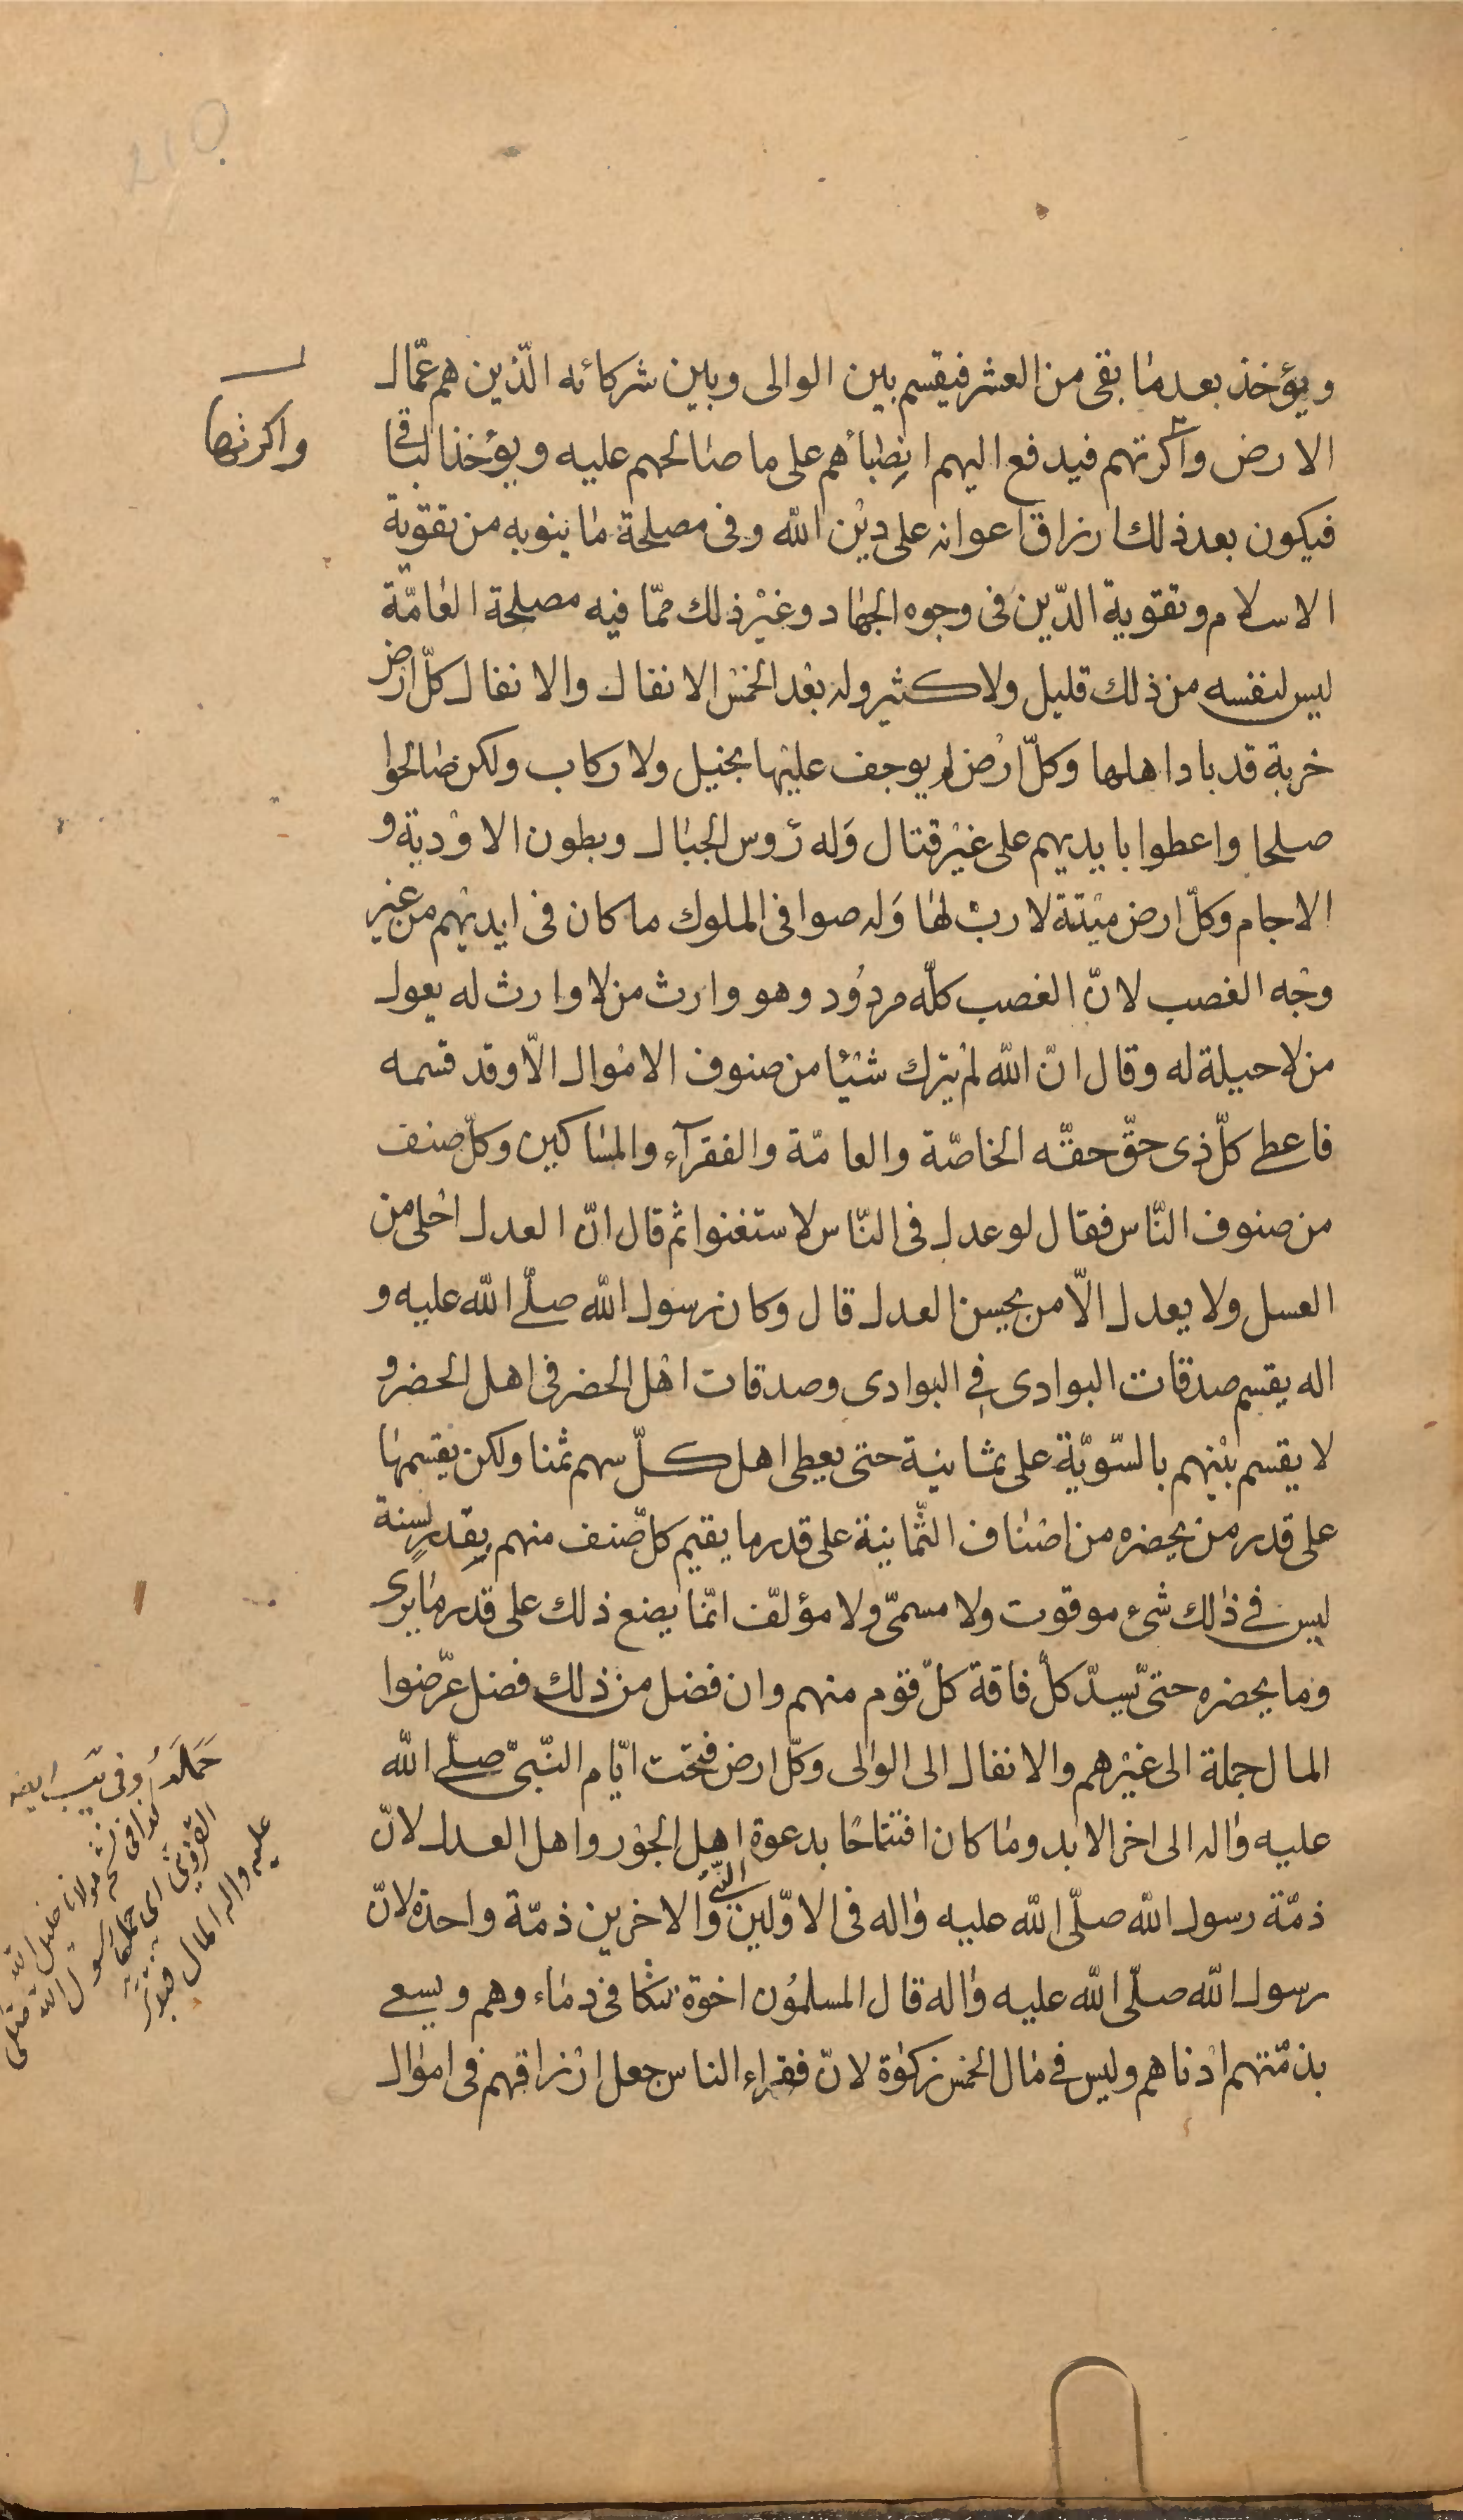 ويؤخذ بعد ما بقى من العشر فيقسم بين الوالى وبين شركائه الّذين هم عمّال
الارض واكرتهم فيدفع اليهم انصباؤهم على ما صالحهم عليه ويؤخذ الباقى
فيكون بعد ذلك ارزاق اعوانه على دين الله وفى مصلحة ما ينوبه من تقوية
الاسلام وتقوية الدّين فى وجوه الجهاد وغير ذلك ممّا فيه مصلحة العامّة
ليس لنفسه من ذلك قليل ولا كثير وله بعد الخمس الانفال والانفال كلّ ارض
خربة قد باد اهلها وكلّ ارض لم يوجف عليها بخيل ولا ركاب ولكن صالحوا
صلحا واعطوا بايديهم على غير قتال وَله رؤس الجبال وبطون الاودية و
الاجام وكلّ ارض ميتة لا ربّ لها وَله صوافى الملوك ما كان فى ايديهم من غير
وجه الغصب لانّ الغصب كلّه مردود وهو وارث من لا وارث له يعول
من لا حيلة له وقال انّ الله لم يترك شيئا من صنوف الاموال الّا وقد قسمه
فاعطى كلّ ذى حقّ حقّه الخاصّة والعامّة والفقرآء والمساكين وكلّ صنف
من صنوف النّاس فقال لو عدل فى النّاس لاستغنوا ثم قال انّ العدل احلى من
العسل ولا يعدل الّا من يحسن العدل قال وكان رسول الله صلّى الله عليه و
اله يقسم صدقات البوادى فى البوادى وصدقات اهل الحضر فى اهل الحضر و
لا يقسم بينهم بالسّويّة على ثمانية حتى يعطى اهل كلّ سهم ثمنا ولكن يقسمها
على قدر من يحضره من اصناف الثّمانية على قدر ما يقيم كلّ صنف منهم بقدر لسنة
ليس فى ذلك شىء موقوت ولا مسمّى ولا مؤلّف انّما يصنع ذلك على قدر ما يرى
وما يحضره حتىّ يسدّ كلّ فاقة كلّ قوم منهم وان فضل من ذلك فضل عرّضوا
المال جملة الى غيرهم والانفال الى الوالى وكلّ ارض فتحت ايّام النّبىّ صلّى الله
عليه واله الى اخر الابد وما كان افتتاحًا بدعوة اهل الجور واهل العدل لانّ
النّبىّ
ذمّة رسول الله صلّى الله عليه واله فى الاوّلين والاخرين ذمّة واحدة لانّ
رسول الله صلّى الله عليه واله قال المسلمون اخوة تتكافى دماءوهم ويسعى
بذمّتهم ادناهم وليس فى مال الخمس زكوة لانّ فقراء الناس جعل ارزاقهم فى اموال
واكرتها
كذا فى نسخ مولانا خليل الله
القزوينى اى حملها رسول الله صلى
عليه واله المال